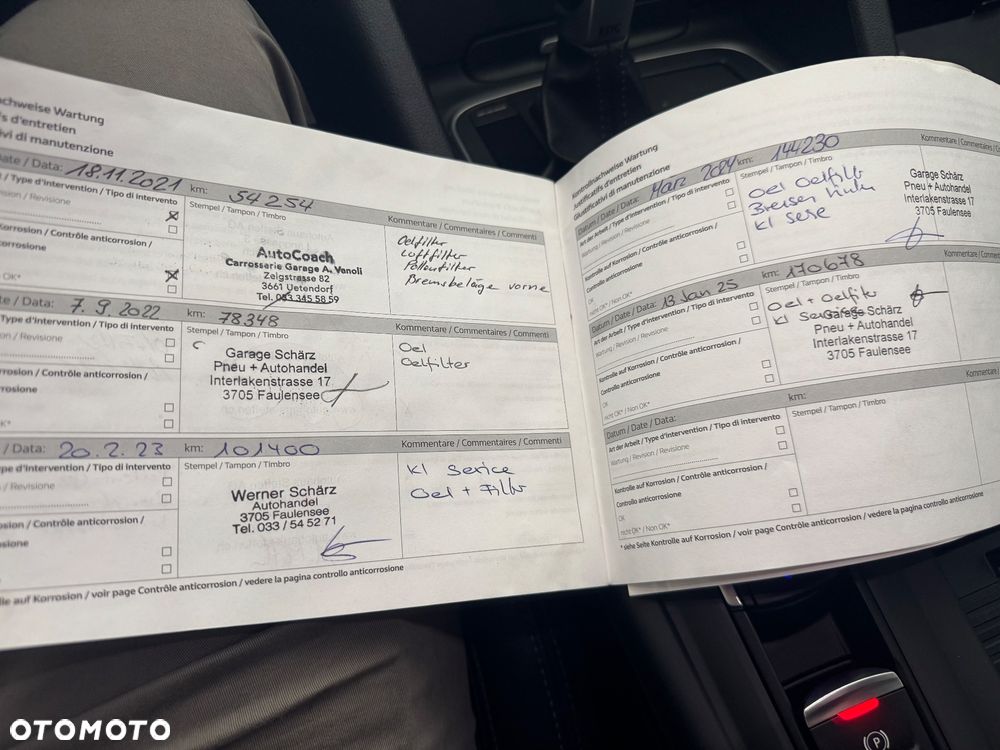 Wartung
d'entretien
di manutenzione
Date / Data: 18.11.2021 km: 54254
/ Type d'intervention / Tipo di intervento
/ Revisione
Stempel / Tampon / Timbro
Kommentare / Commentaires / Commenti
Korrosion / Contrôle anticorrosion /
OK*
AutoCoach
Carrosserie Garage A. Vanoli
Zelgstrasse 82
3661 Uetendorf
Tel. 033 345 58 59
Oelfilter
Luftfilter
Pollenfilter
Bremsbeläge vorne
/ Data: 7.9.2022 km: 78348
Type d'intervention / Tipo di intervento
/ Revisione
Stempel / Tampon / Timbro
Kommentare / Commentaires / Commenti
/ Contrôle anticorrosion /
Garage Schärz
Pneu + Autohandel
Interlakenstrasse 17
3705 Faulensee
Oel
Oelfilter
/ Data: 20.2.23 km: 101400
d'intervention / Tipo di intervento
/ Revisione
Stempel / Tampon / Timbro
Kommentare / Commentaires / Commenti
/ Contrôle anticorrosion /
Werner Schärz
Autohandel
3705 Faulensee
Tel. 033 / 54 52 71
Kl Serice
Oel + Filter
auf Korrosion / voir page Contrôle anticorrosion / vedere la pagina controllo anticorrosione
Kontrollnachweise Wartung
Justificatifs d'entretien
Giustificativi di manutenzione
Datum / Date / Data: März 2024 km: 144230
Art der Arbeit / Type d'intervention / Tipo di intervento
Wartung / Revision / Revisione
Stempel / Tampon / Timbro
Kommentare / Commentaires
Kontrolle auf Korrosion / Contrôle anticorrosion /
Controllo anticorrosione
OK
nicht OK* / Non OK*
Oel Oelfilt
Garage Schärz
Pneu + Autohandel
Interlakenstrasse 17
3705 Faulensee
Datum / Date / Data: 13 Jan 25 km: 170678
Art der Arbeit / Type d'intervention / Tipo di intervento
Wartung / Revision / Revisione
Stempel / Tampon / Timbro
Kommentare
Kontrolle auf Korrosion / Contrôle anticorrosion /
Controllo anticorrosione
OK
nicht OK* / Non OK*
Garage Schärz
Pneu + Autohandel
Interlakenstrasse 17
3705 Faulensee
Datum / Date / Data: km:
Art der Arbeit / Type d'intervention / Tipo di intervento
Wartung / Revision / Revisione
Stempel / Tampon / Timbro
Kontrolle auf Korrosion / Contrôle anticorrosion /
Controllo anticorrosione
OK
nicht OK* / Non OK*
* siehe Seite Kontrolle auf Korrosion / voir page Contrôle anticorrosion / vedere la pagina controllo anticorrosione
OTOMOTO